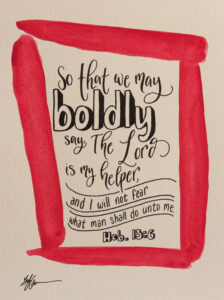 So that we may
boldly
say The Lord
is my helper,
and I will not fear
what man shall do unto me.
Heb. 13:6